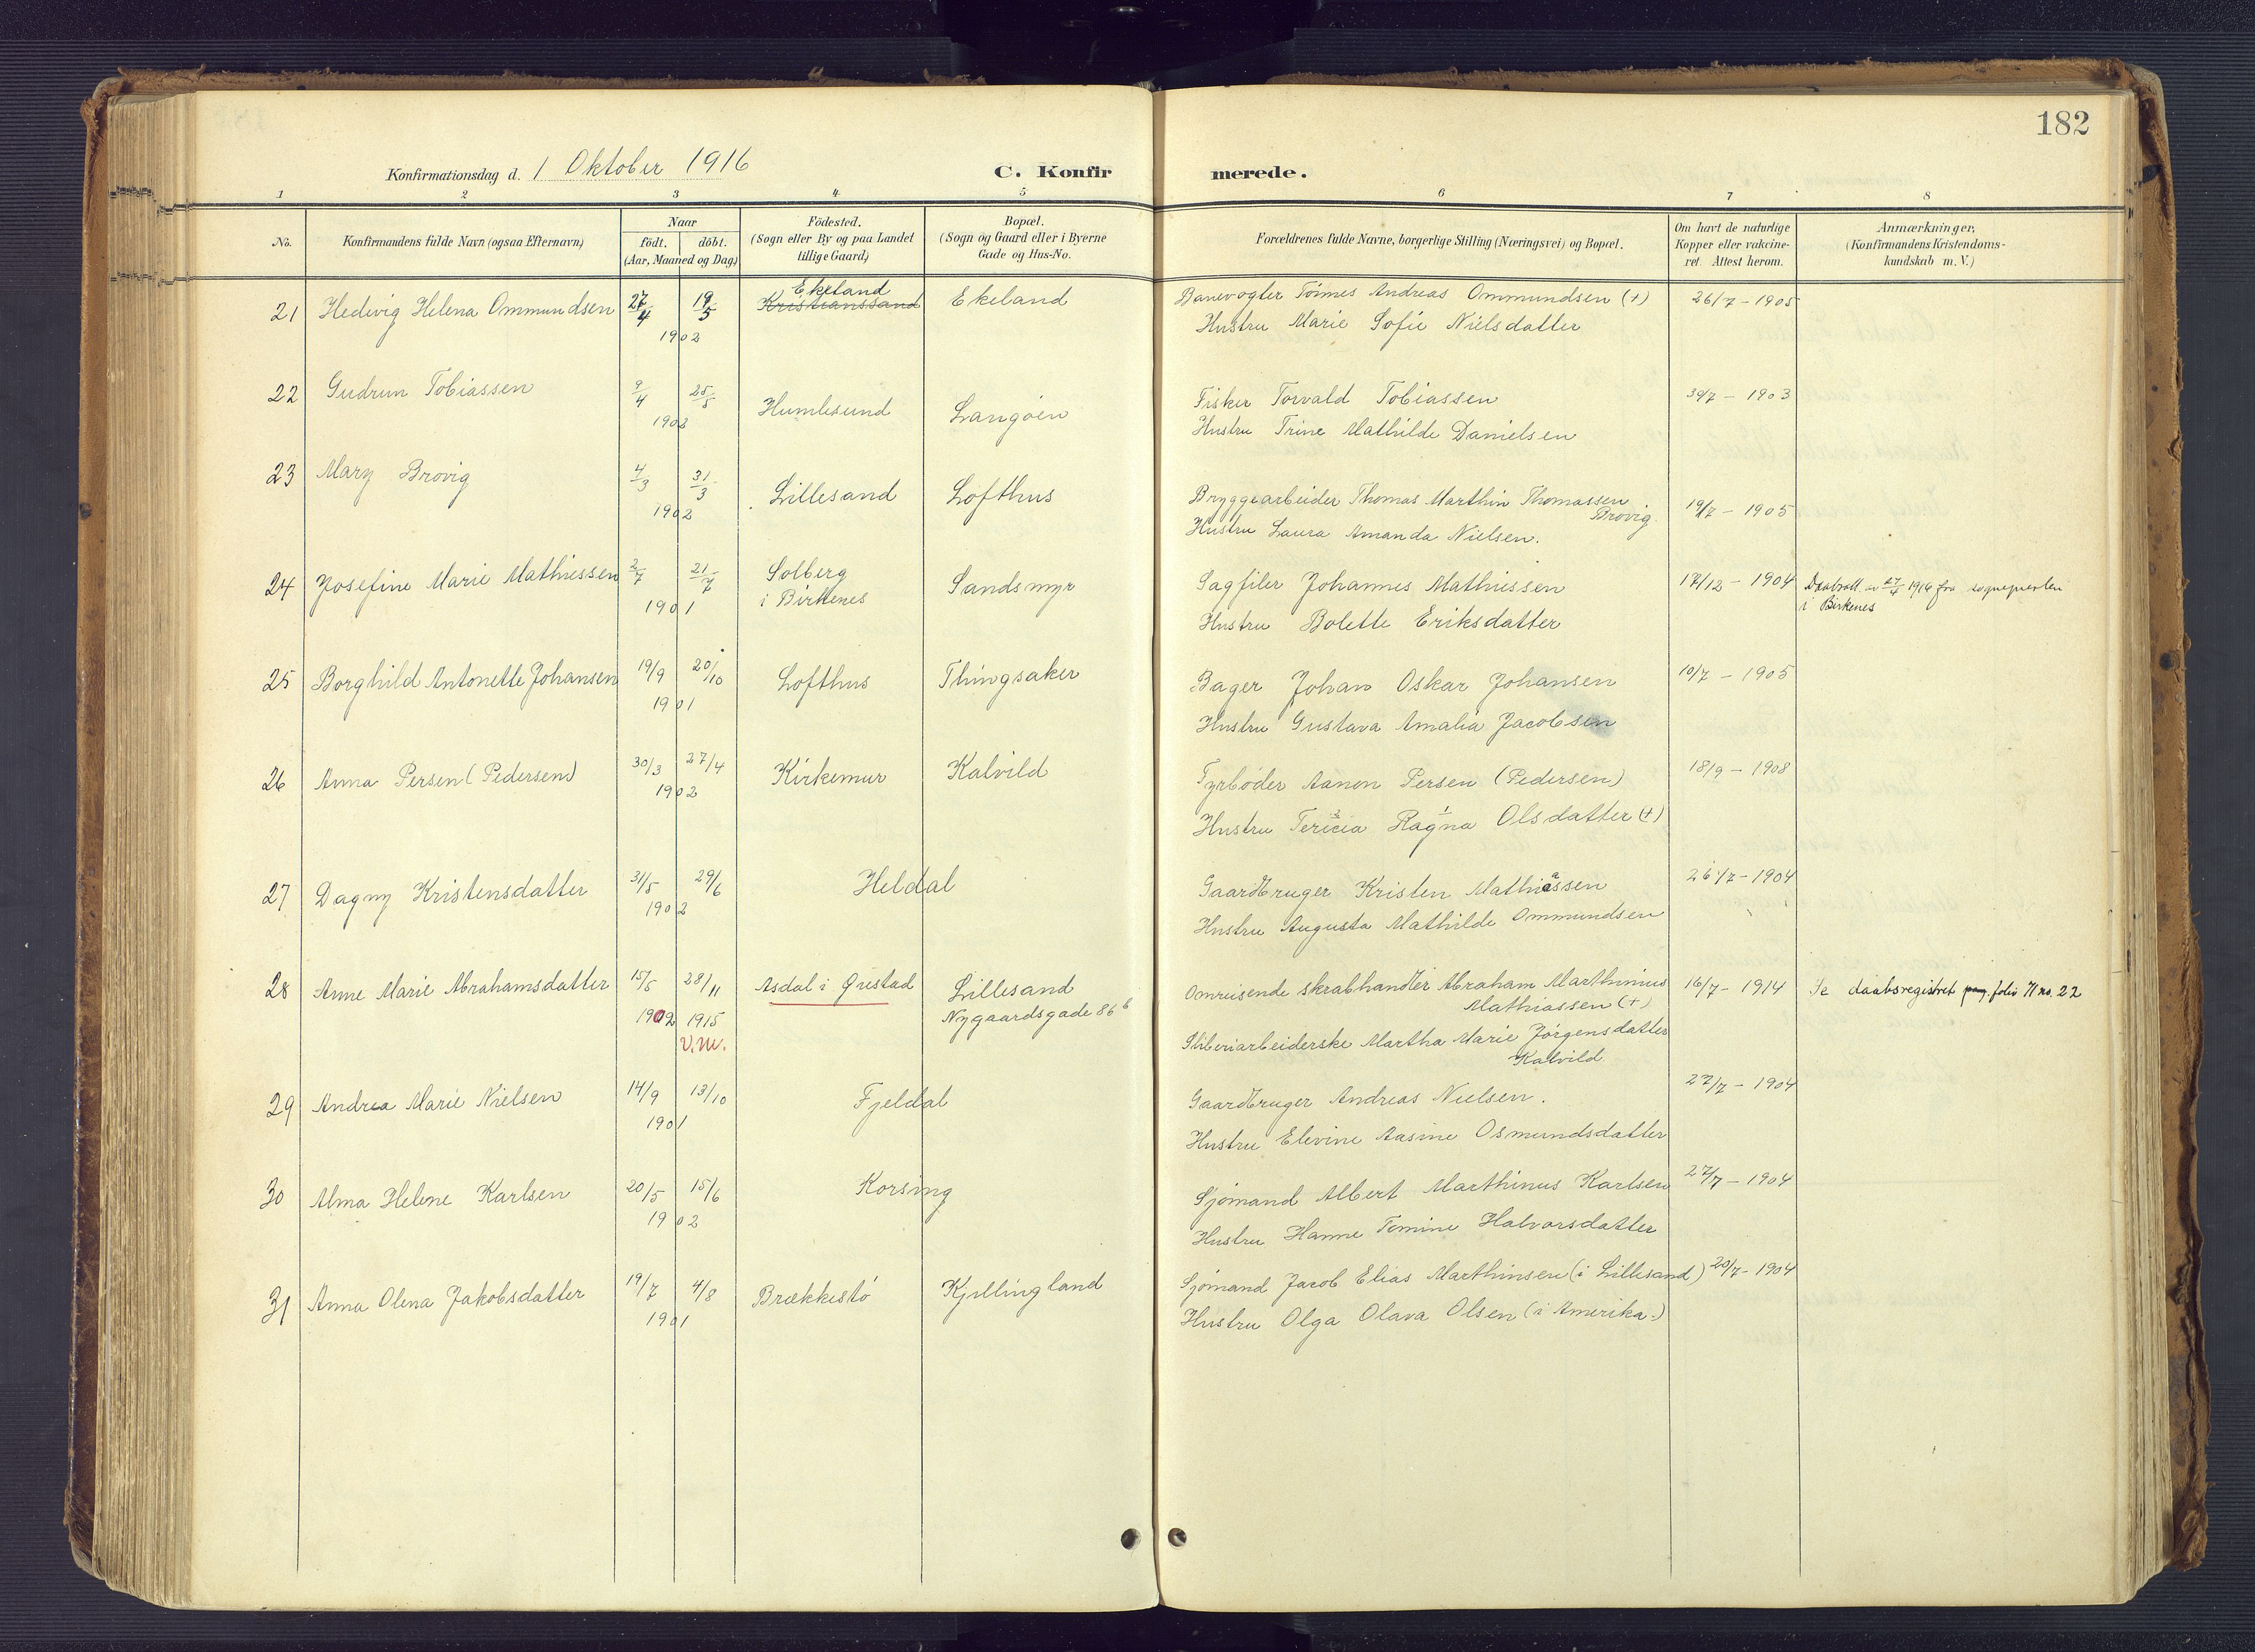 182
Konfirmationsdag d. 1 Oktober 1916
C. Konfirmerede.
1 2 3 4 5 6 7 8
No.
Konfirmandens fulde Navn (ogsaa Efternavn)
Naar
födt. döbt.
(Aar, Maaned og Dag)
Födested.
(Sogn eller By og paa Landet
tillige Gaard)
Bopæl.
(Sogn og Gaard eller i Byerne
Gade og Hus-No.
Forældrenes fulde Navne, borgerlige Stilling (Næringsvei) og Bopæl.
Om havt de naturlige
Kopper eller vakcine-
ret. Attest herom.
Anmærkninger,
(Konfirmandens Kristendoms-
kundskab m. V.)
21 Hedevig Helena Ommundsen 27/4 19/5 1902 Ekeland Kristianssand Ekeland
Banevogter Tönnes Andreas Ommundsen (+) 26/7 - 1905
Hustru Marie Sofie Nielsdatter
22 Gudrun Tobiassen 9/4 25/5 1902 Humlesund Langöen
Fisker Torvald Tobiassen 30/7 - 1903
Hustru Trine Mathilde Danielsen
23 Mary Brovig 4/3 31/3 1902 Lillesand Lofthus
Bryggearbeider Thomas Marthin Thomassen
Brovig. 19/7 - 1905
Hustru Laura Amanda Nielsen.
24 Josefine Marie Mathiessen 2/7 21/7 1901 Solberg
i Birkenes Sandsmyr
Sagfiler Johannes Mathiessen 17/12 - 1904
Hustru Bolette Eriksdatter
Daabsatt. av 27/4 1916 fra sognepresten
i Birkenes
25 Borghild Antonette Johansen 19/9 20/10 1901 Lofthus Thingsaker
Bager Johan Oskar Johansen 10/7 - 1905
Hustru Gustava Amalia Jacobsen
26 Anna Persen (Pedersen) 30/3 27/4 1902 Kirkemur Kalvild
Fyrböder Aanon Persen (Pedersen) 18/9 - 1908
Hustru Tericia Ragna Olsdatter (+)
27 Dagny Kristensdatter 31/5 29/6 1902 Heldal
Gaardbruger Kristen Mathiassen 26/7 - 1904
Hustru Augusta Mathilde Ommundsen
28 Anne Marie Abrahamsdatter 15/5 1902 28/11 1915 V.M. Asdal i Öiestad Lillesand
Nygaardsgade 86 b
Omreisende skrabhandler Abraham Marthinius
Mathiassen (+) 16/7 - 1914
Sliberiarbeiderske Martha Marie Jörgensdatter
Kalvild.
Se daabsregistret pag. folio 71 no. 22
29 Andrea Marie Nielsen 14/9 13/10 1901 Fjeldal
Gaardbruger Andreas Nielsen. 27/7 - 1904
Hustru Elevine Aasine Osmundsdatter
30 Alma Helene Karlsen 20/5 15/6 1902 Korsing
Sjömand Albert Marthinus Karlsen 27/7 - 1904
Hustru Hanne Tomine Halvorsdatter
31 Anna Olena Jakobsdatter 19/7 4/8 1901 Brækkestö Kjellingland
Sjömand Jacob Elias Marthinsen (i Lillesand) 20/7 - 1904
Hustru Olga Olava Olsen (i Amerika.)